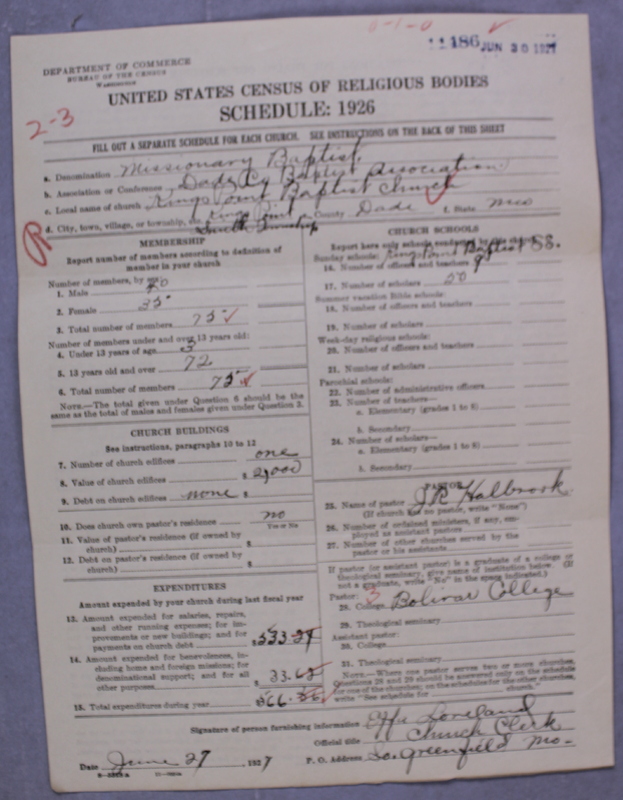 0-1-0
11186 JUN 30 1927
DEPARTMENT OF COMMERCE
BUREAU OF THE CENSUS
WASHINGTON
UNITED STATES CENSUS OF RELIGIOUS BODIES
SCHEDULE: 1926
2-3
FILL OUT A SEPARATE SCHEDULE FOR EACH CHURCH. SEE INSTRUCTIONS ON THE BACK OF THIS SHEET
a. Denomination Missionary Baptist
b. Association or Conference Dade Co Baptist Association
c. Local name of church Kings Point Baptist Church
d. City, town, village, or township, etc. Kings Point County Dade f. State Mo
Smith Township
MEMBERSHIP
Report number of members according to definition of
member in your church
Number of members, by sex:
1. Male 40
2. Female 35
3. Total number of members 75
Number of members under and over 13 years old:
4. Under 13 years of age 3
5. 13 years old and over 72
6. Total number of members 75
NOTE.—The total given under Question 6 should be the
same as the total of males and females given under Question 3.
CHURCH BUILDINGS
See instructions, paragraphs 10 to 12
7. Number of church edifices one
8. Value of church edifices $ 2,000
9. Debt on church edifices none $
10. Does church own pastor's residence no
Yes or No
11. Value of pastor's residence (if owned by
church) $
12. Debt on pastor's residence (if owned by
church) $
EXPENDITURES
Amount expended by your church during last fiscal year
13. Amount expended for salaries, repairs,
and other running expenses; for im-
provements or new buildings; and for
payments on church debt $
14. Amount expended for benevolences, in-
cluding home and foreign missions; for
denominational support; and for all
other purposes 33.62
15. Total expenditures during year
CHURCH SCHOOLS
Report here only schools conducted by this church
Sunday schools: Kings Point Baptist S.S.
16. Number of officers and teachers 9
17. Number of scholars 50
Summer vacation Bible schools:
18. Number of officers and teachers
19. Number of scholars
Week-day religious schools:
20. Number of officers and teachers
21. Number of scholars
Parochial schools:
22. Number of administrative officers
23. Number of teachers—
a. Elementary (grades 1 to 8)
b. Secondary
24. Number of scholars—
a. Elementary (grades 1 to 8)
b. Secondary
PASTOR
25. Name of pastor J R Halbrook
(If church has no pastor, write "None")
26. Number of ordained ministers, if any, em-
ployed as assistant pastors
27. Number of other churches served by the
pastor or his assistants
If pastor (or assistant pastor) is a graduate of a college or
theological seminary, give name of institution below. (If
not a graduate, write "No" in the space indicated.)
Pastor: 3
28. College Bolivar College
29. Theological seminary
Assistant pastor:
30. College
31. Theological seminary
NOTE.—Where one pastor serves two or more churches,
Questions 28 and 29 should be answered only on the schedule
for one of the churches; on the schedules for the other churches,
write "See schedule for church."
Signature of person furnishing information Effie Loveland
Official title Church Clerk
Date June 27 1927 P. O. Address So. Greenfield Mo.